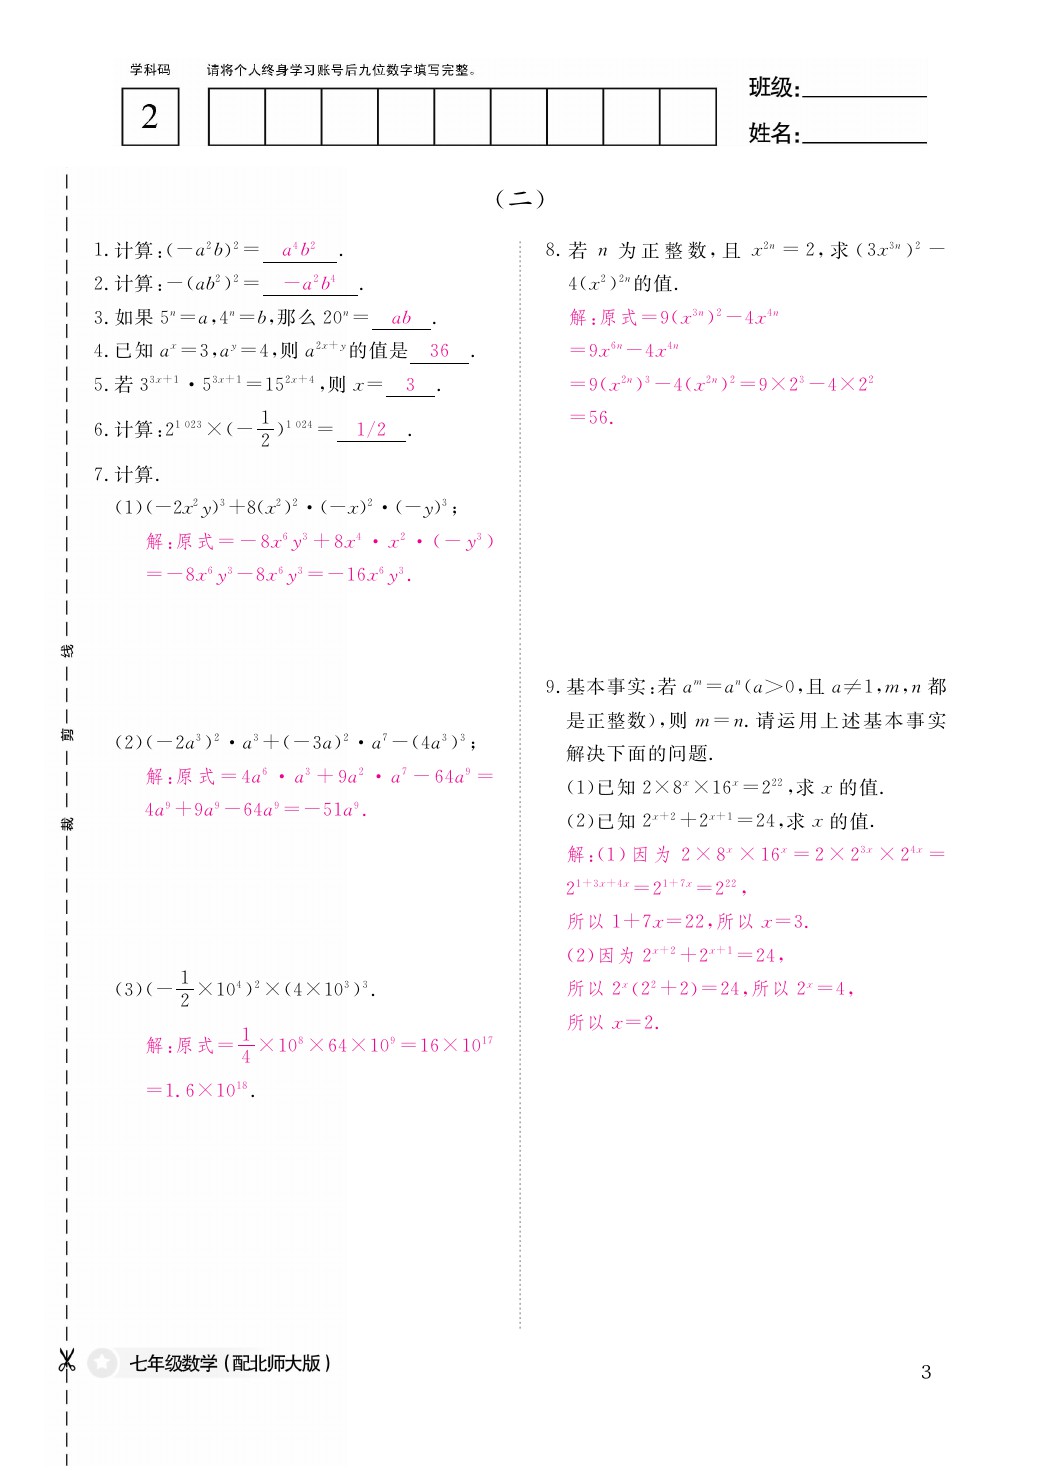 学科码 请将个人终身学习账号后九位数字填写完整。
2
班级:
姓名:
(二)
1. 计算:(-a²b)²= a⁴b² .
2. 计算:-(ab²)²= -a²b⁴ .
3. 如果 5ⁿ=a,4ⁿ=b,那么 20ⁿ= ab .
4. 已知 aˣ=3,aʸ=4,则 a²ˣ⁺ʸ的值是 36 .
5. 若 3³ˣ⁺¹·5³ˣ⁺¹=15²ˣ⁺⁴,则 x= 3 .
6. 计算:2¹ ⁰²³×(-1/2)¹ ⁰²⁴= 1/2 .
7. 计算.
(1)(-2x²y)³+8(x²)²·(-x)²·(-y)³;
解:原式=-8x⁶y³+8x⁴·x²·(-y³)
=-8x⁶y³-8x⁶y³=-16x⁶y³.
(2)(-2a³)²·a³+(-3a)²·a⁷-(4a³)³;
解:原式=4a⁶·a³+9a²·a⁷-64a⁹=
4a⁹+9a⁹-64a⁹=-51a⁹.
(3)(-1/2×10⁴)²×(4×10³)³.
解:原式=1/4×10⁸×64×10⁹=16×10¹⁷
=1.6×10¹⁸.
8. 若 n 为正整数,且 x²ⁿ=2,求(3x³ⁿ)²-
4(x²)²ⁿ的值.
解:原式=9(x³ⁿ)²-4x⁴ⁿ
=9x⁶ⁿ-4x⁴ⁿ
=9(x²ⁿ)³-4(x²ⁿ)²=9×2³-4×2²
=56.
9. 基本事实:若 aᵐ=aⁿ(a>0,且 a≠1,m,n 都
是正整数),则 m=n. 请运用上述基本事实
解决下面的问题.
(1)已知 2×8ˣ×16ˣ=2²²,求 x 的值.
(2)已知 2ˣ⁺²+2ˣ⁺¹=24,求 x 的值.
解:(1)因为 2×8ˣ×16ˣ=2×2³ˣ×2⁴ˣ=
2¹⁺³ˣ⁺⁴ˣ=2¹⁺⁷ˣ=2²²,
所以 1+7x=22,所以 x=3.
(2)因为 2ˣ⁺²+2ˣ⁺¹=24,
所以 2ˣ(2²+2)=24,所以 2ˣ=4,
所以 x=2.
裁
剪
线
七年级数学(配北师大版)
3